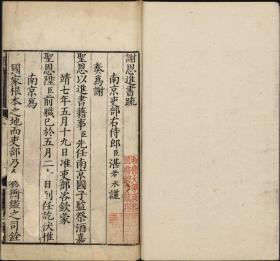 謝恩進書疏
南京吏部右侍郎臣湛若水謹
奏爲謝
聖恩以進書籍事臣先任南京國子監祭酒嘉
靖七年五月十九日准吏部咨欽蒙
聖恩陞臣前職已於五月二日到任訖伏惟
南京爲
國家根本之地而吏部乃
銓衡鑑之司